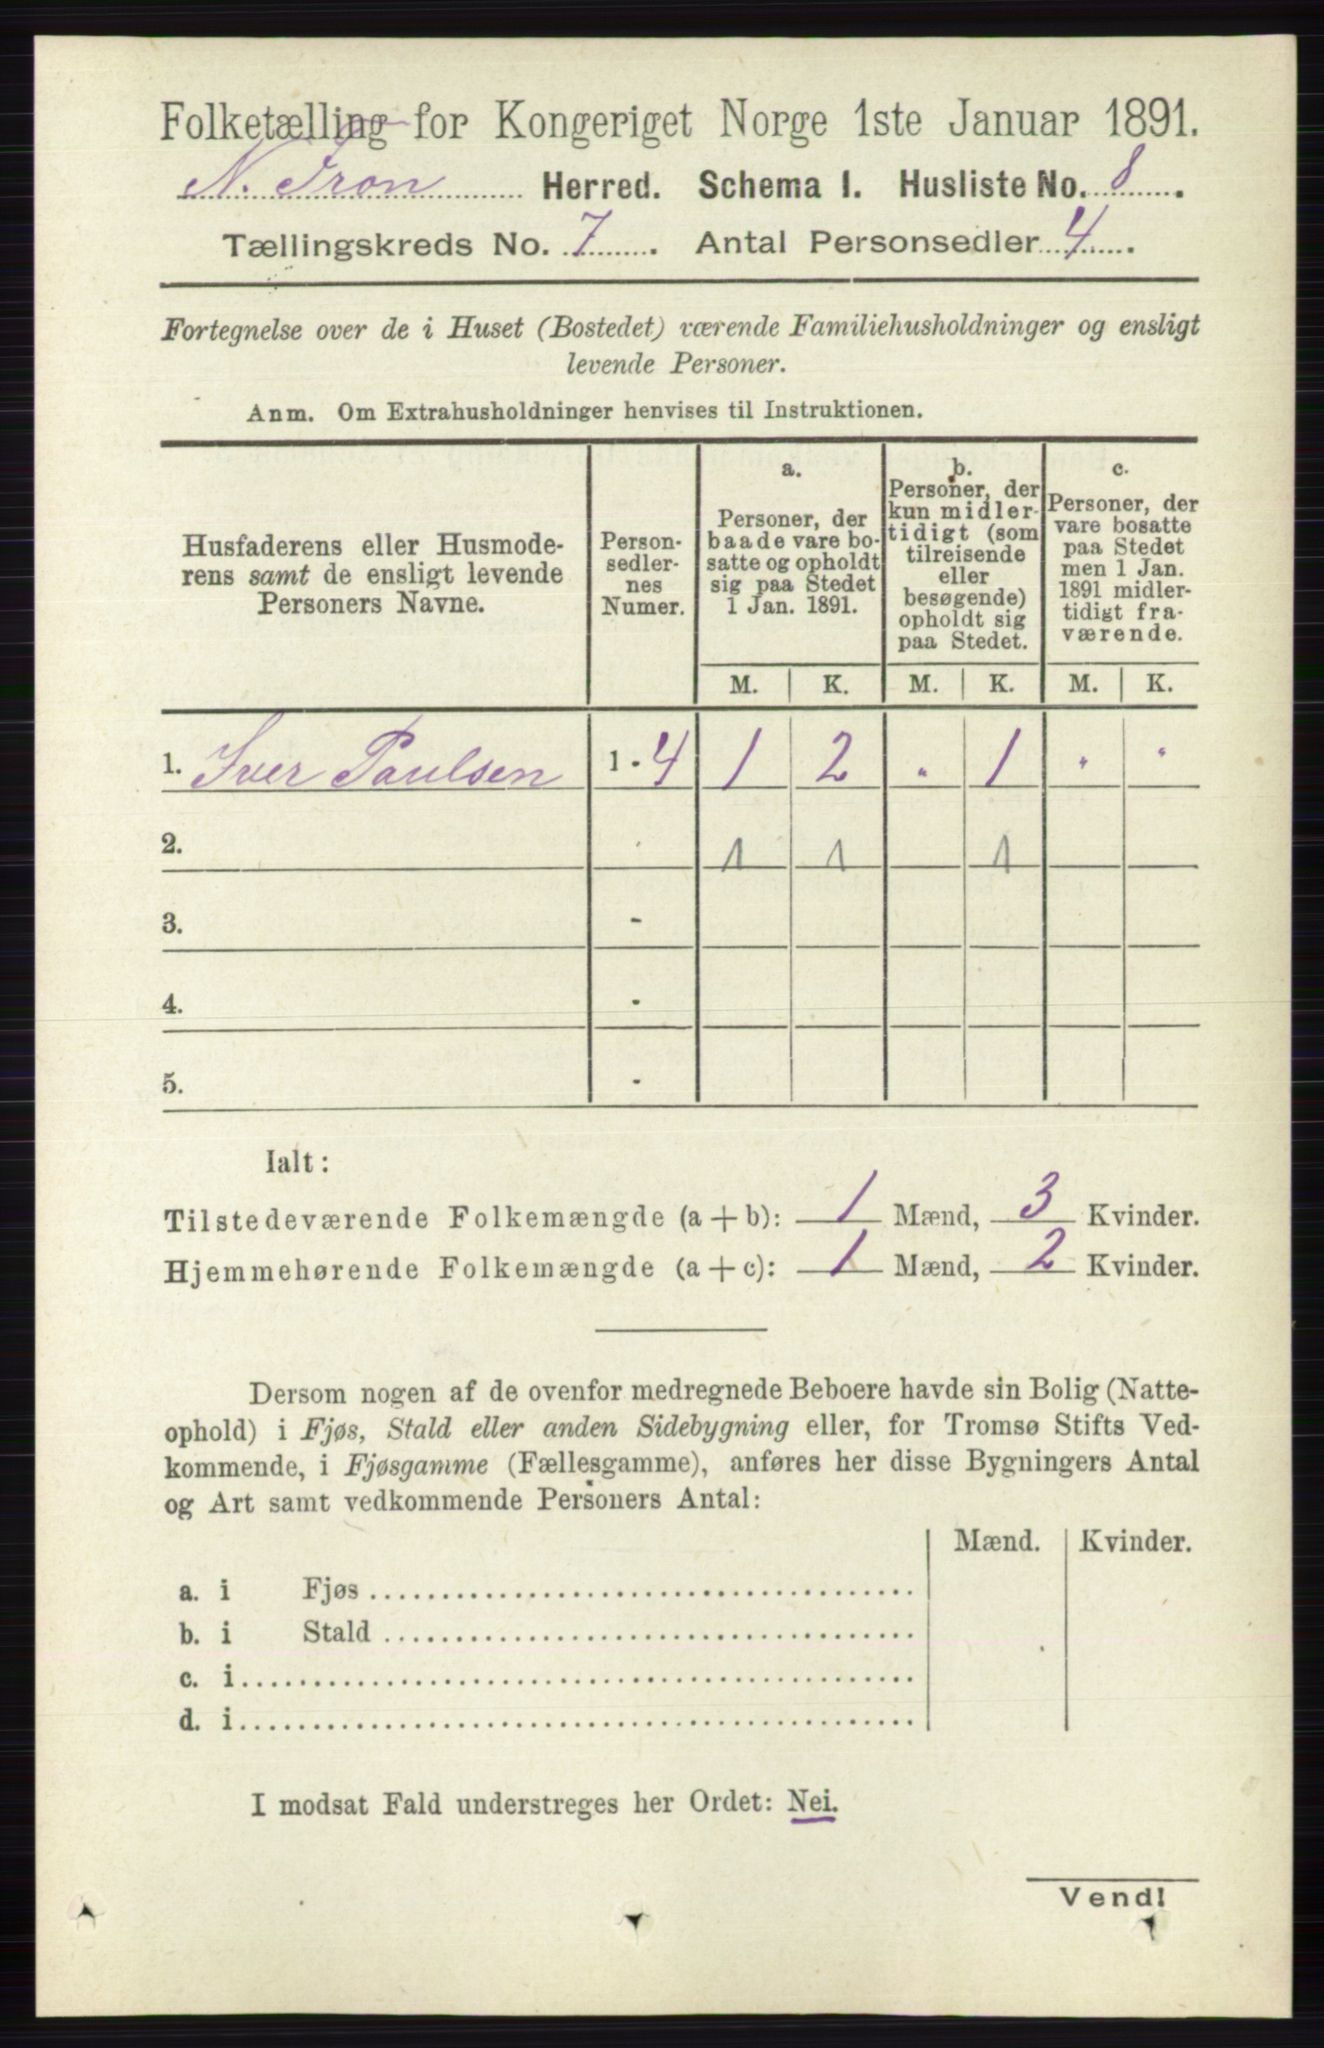 Folketælling for Kongeriget Norge 1ste Januar 1891.
N. Fron Herred. Schema I. Husliste No. 8.
Tællingskreds No. 7. Antal Personsedler 4.
Fortegnelse over de i Huset (Bostedet) værende Familiehusholdninger og ensligt
levende Personer.
Anm. Om Extrahusholdninger henvises til Instruktionen.
Husfaderens eller Husmode-
rens samt de ensligt levende
Personers Navne.
Person-
sedler-
nes
Numer.
a.
Personer, der
baade vare bo-
satte og opholdt
sig paa Stedet
1 Jan. 1891.
b.
Personer, der
kun midler-
tidigt (som
tilreisende
eller
besøgende)
opholdt sig
paa Stedet.
c.
Personer, der
vare bosatte
paa Stedet
men 1 Jan.
1891 midler-
tidigt fra-
værende.
M. K. M. K. M. K.
1. Iver Paulsen 1 - 4 1 2 . 1 . .
2. 1 1 1
3. -
4. -
5. -
Ialt:
Tilstedeværende Folkemængde (a + b): 1 Mænd, 3 Kvinder.
Hjemmehørende Folkemængde (a + c): 1 Mænd, 2 Kvinder.
Dersom nogen af de ovenfor medregnede Beboere havde sin Bolig (Natte-
ophold) i Fjøs, Stald eller anden Sidebygning eller, for Tromsø Stifts Ved-
kommende, i Fjøsgamme (Fællesgamme), anføres her disse Bygningers Antal
og Art samt vedkommende Personers Antal:
Mænd. Kvinder.
a. i Fjøs
b. i Stald
c. i
d. i
I modsat Fald understreges her Ordet: Nei.
Vend!